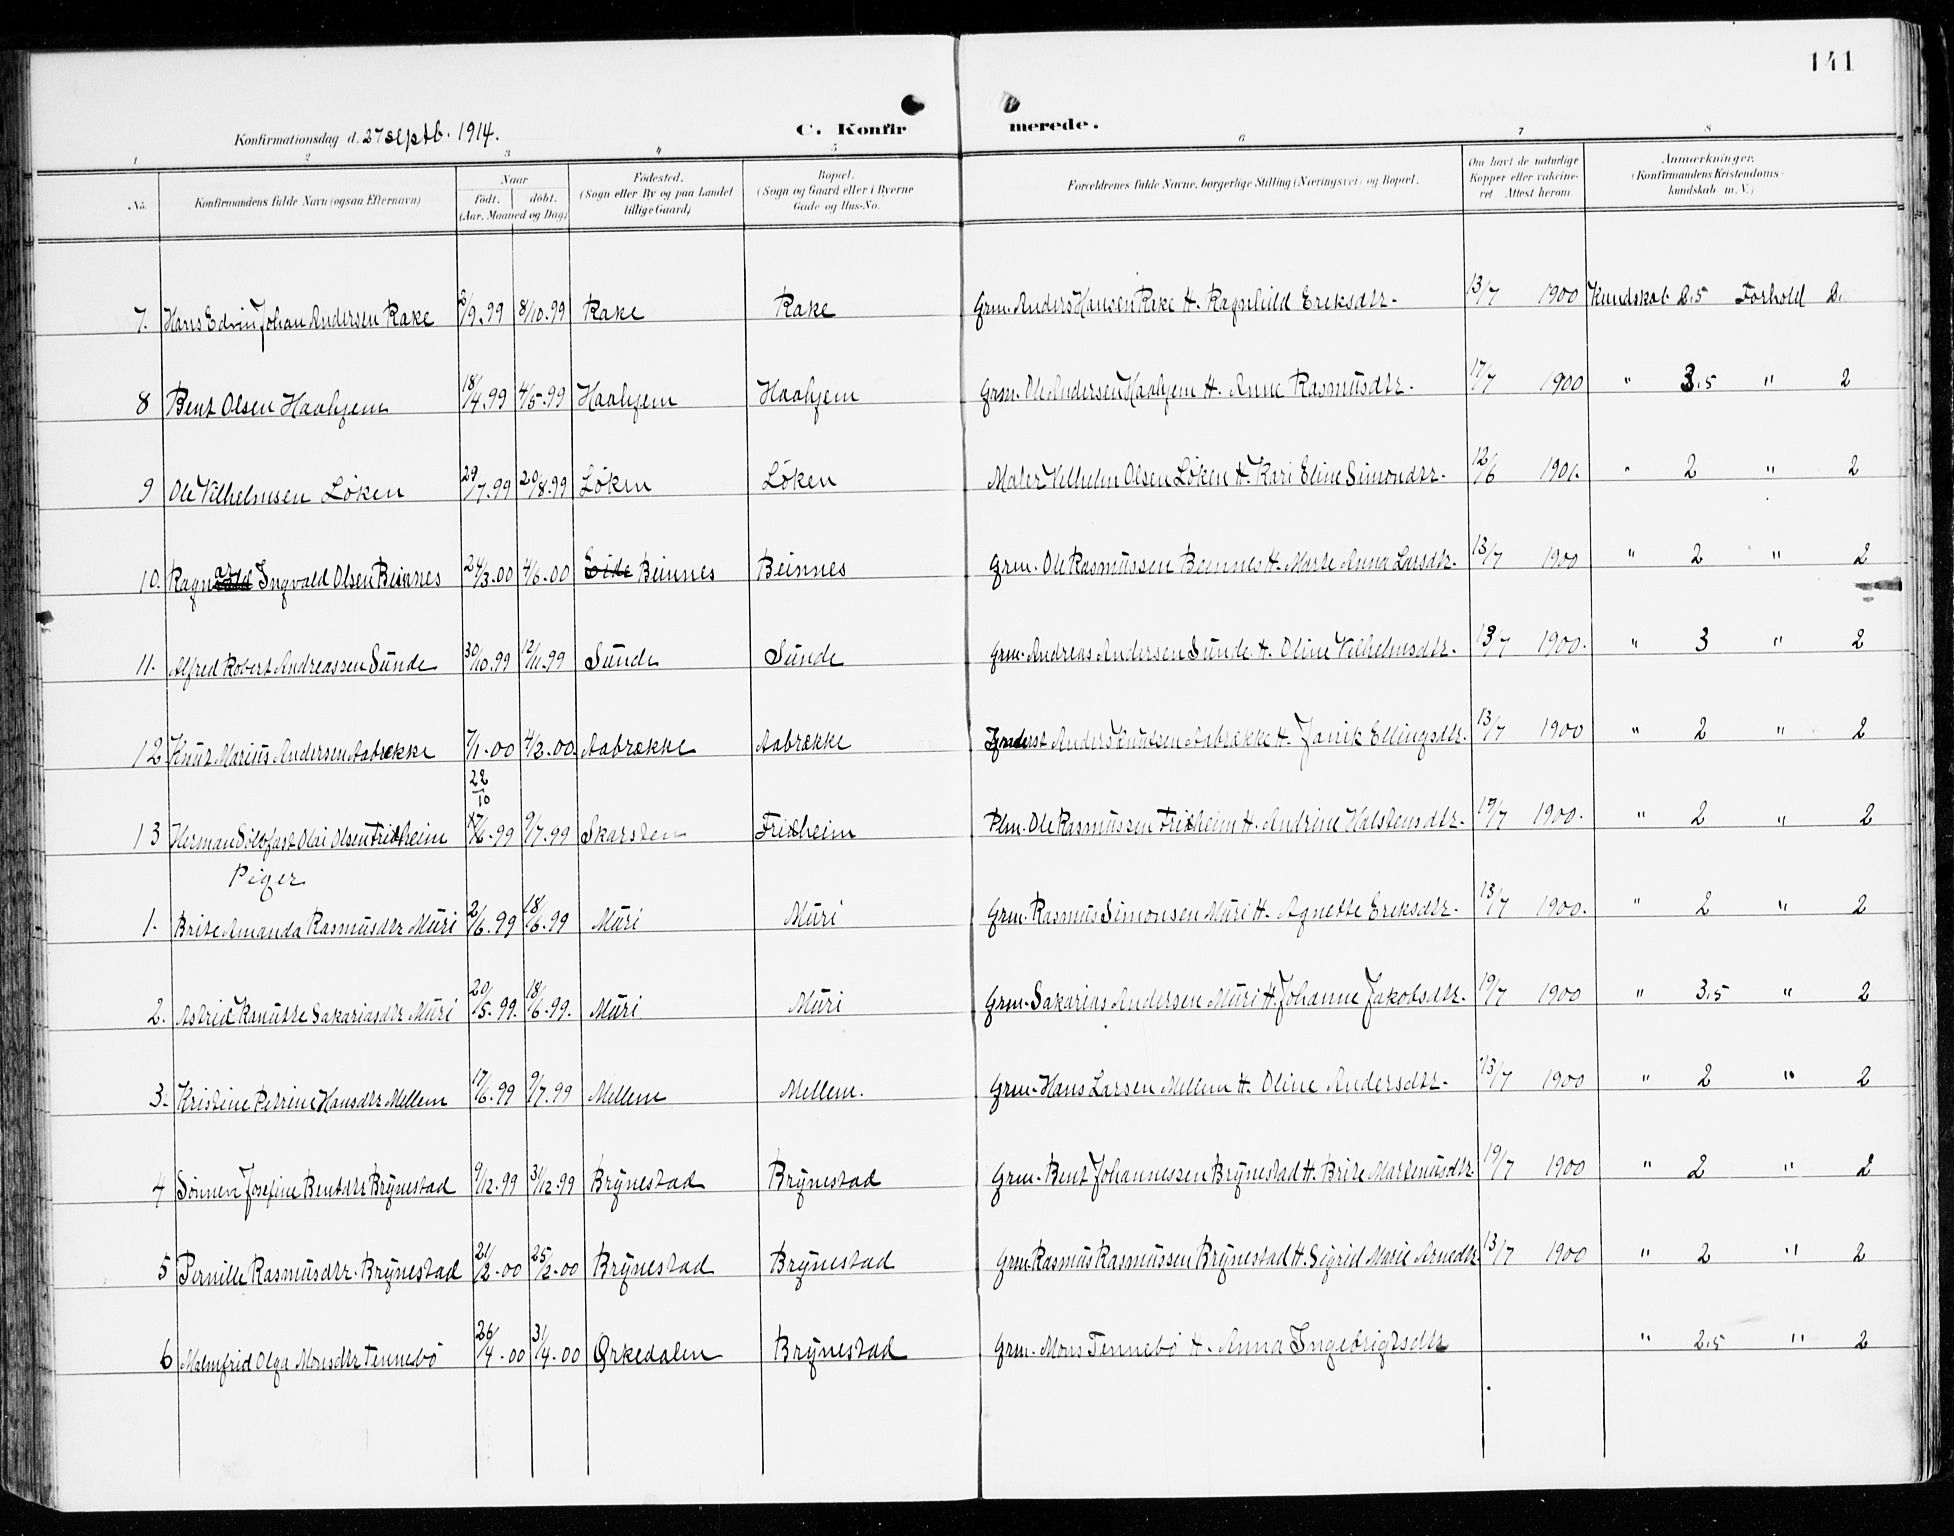 141
Konfirmationsdag d. 27 septb. 1914.
C. Konfirmerede.
1 2 3 4 5 6 7 8
No. Konfirmandens fulde Navn (ogsaa Efternavn) Naar født. døbt. (Aar, Maaned og Dag) Fødested. (Sogn eller By og paa Landet tillige Gaard) Bopæl. (Sogn og Gaard eller i Byerne Gade og Hus-No. Forældrenes fulde Navne, borgerlige Stilling (Næringsvei) og Bopæl. Om havt de naturlige Kopper eller vakcineret Attest herom. Anmærkninger. (Konfirmandens Kristendomskundskab m. V.)
7. Hans Edvin Johan Andersen Rake 8/9.99 8/10.99 Rake Rake Grm. Anders Hansen Rake H. Ragnhild Eriksdtr. 13/7 1900 Kundskab 2.5 Forhold 2.
8 Bent Olsen Haahjem 18/4.99 4/5.99 Haahjem Haahjem Grm. Ole Andersen Haahjem H. Anne Rasmusdtr. 17/7 1900 " 3.5 " 2
9 Ole Vilhelmsen Løken 29/7.99 20/8.99 Løken Løken Maler Vilhelm Olsen Løken H. Kari Eline Simondtr. 12/6 1901. " 2 " 2
10. Ragnar Ingvald Olsen Beinnes 24/3.00 4/6.00 Eide Beinnes Beinnes Grm. Ole Rasmussen Beinnes H. Marte Anna Larsdtr. 13/7 1900 " 2 " 2
11. Alfred Robert Andreassen Sunde 30/10.99 12/11.99 Sunde Sunde Grm. Andreas Andersen Sunde H. Oline Vilhelmsdtr. 13/7 1900. " 3 " 2
12 Knut Marius Andersen Aabrekke 7/1.00 4/2.00. Aabrække Aabrække Anders Knutsen Aabrække H. Janik Ellingsdtr. 13/7 1900 " 2 " 2
22/10
13 Herman Solofast Olai Olsen Fridheim 17/6.99 9/7.99 Skarsten Fridheim Plm. Ole Rasmussen Fridheim H. Andrine Halstensdtr. 19/7 1900. " 2 " 2
Piger
1. Brite Amanda Rasmusdtr Muri 2/6.99 18/6.99 Muri Muri Grm. Rasmus Simonsen Muri H. Agnette Eriksdtr. 13/7 1900. " 2 " 2
2. Astrid Kanutte Sakariasdtr Muri 20/5.99. 18/6.99. Muri Muri Grm. Sakarias Andersen Muri H. Johanne Jakobsdtr. 19/7 1900 " 3.5 " 2
3. Kristine Petrine Hansdtr Mellem 17/6.99 9/7.99 Mellem Mellem. Grm. Hans Larsen Mellem H. Oline Andersdtr. 13/7 1900 " 2 " 2
4 Sønnev Josefine Bentdtr Brynestad 9/12.99 31/12.99 Brynestad Brynestad Grm. Bent Johannessen Brynestad H. Brite Martenusdtr. 19/7 1900 " 2 " 2
5 Pernille Rasmusdtr. Brynestad 21/2.00 25/2.00 Brynestad Brynestad Grm. Rasmus Rasmussen Brynestad H. Sigrid Marie Arnedtr. 13/7 1900 " 2 " 2
6 Malmfrid Olga Monsdtr Tennebö 26/4.00 31/4.00 Orkedalen Brynestad Grm. Mons Tennebö H. Anna Ingebrigtsdtr " 2.5 " 2